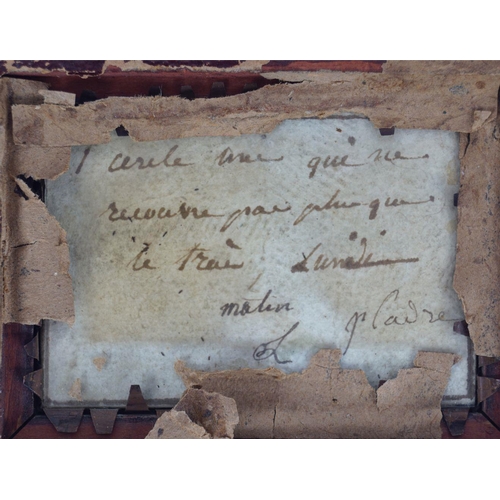 1 cercle uni qui ne
recouvre pas plus que
le trait, Lundi
matin
pr Cadre